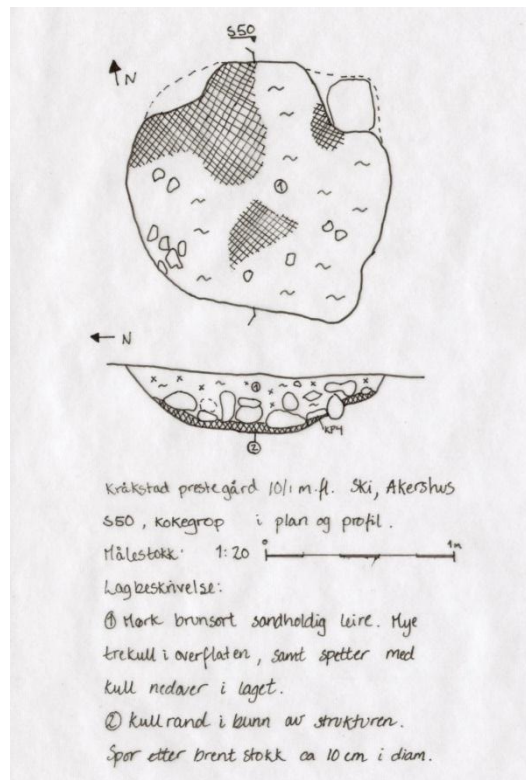 S50
N
①
N
①
KP4
②
Kråkstad prestegård 10/1 m.fl. Ski, Akershus
S50, kokegrop i plan og profil.
Målestokk: 1:20 0 1m
Lagbeskrivelse:
① Mørk brunsort sandholdig leire. Mye
trekull i overflaten, samt spetter med
kull nedover i laget.
② Kullrand i bunn av strukturen.
Spor etter brent stokk ca 10 cm i diam.